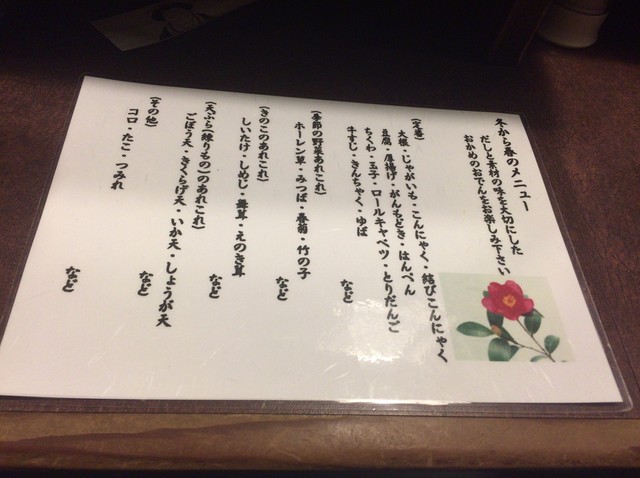 冬から春のメニュー
だしと素材の味を大切にした
おかめのおでんをお楽しみ下さい
(定番)
大根・じゃがいも・こんにゃく・結びこんにゃく
豆腐・厚揚げ・がんもどき・はんぺん
ちくわ・玉子・ロールキャベツ・とりだんご
牛すじ・きんちゃく・ゆば
など
(季節の野菜あれこれ)
ホーレン草・みつば・春菊・竹の子
など
(きのこのあれこれ)
しいたけ・しめじ・舞茸・えのき茸
など
(天ぷら(練りもの)のあれこれ)
ごぼう天・きくらげ天・いか天・しょうが天
など
(その他)
コロ・たこ・つみれ
など